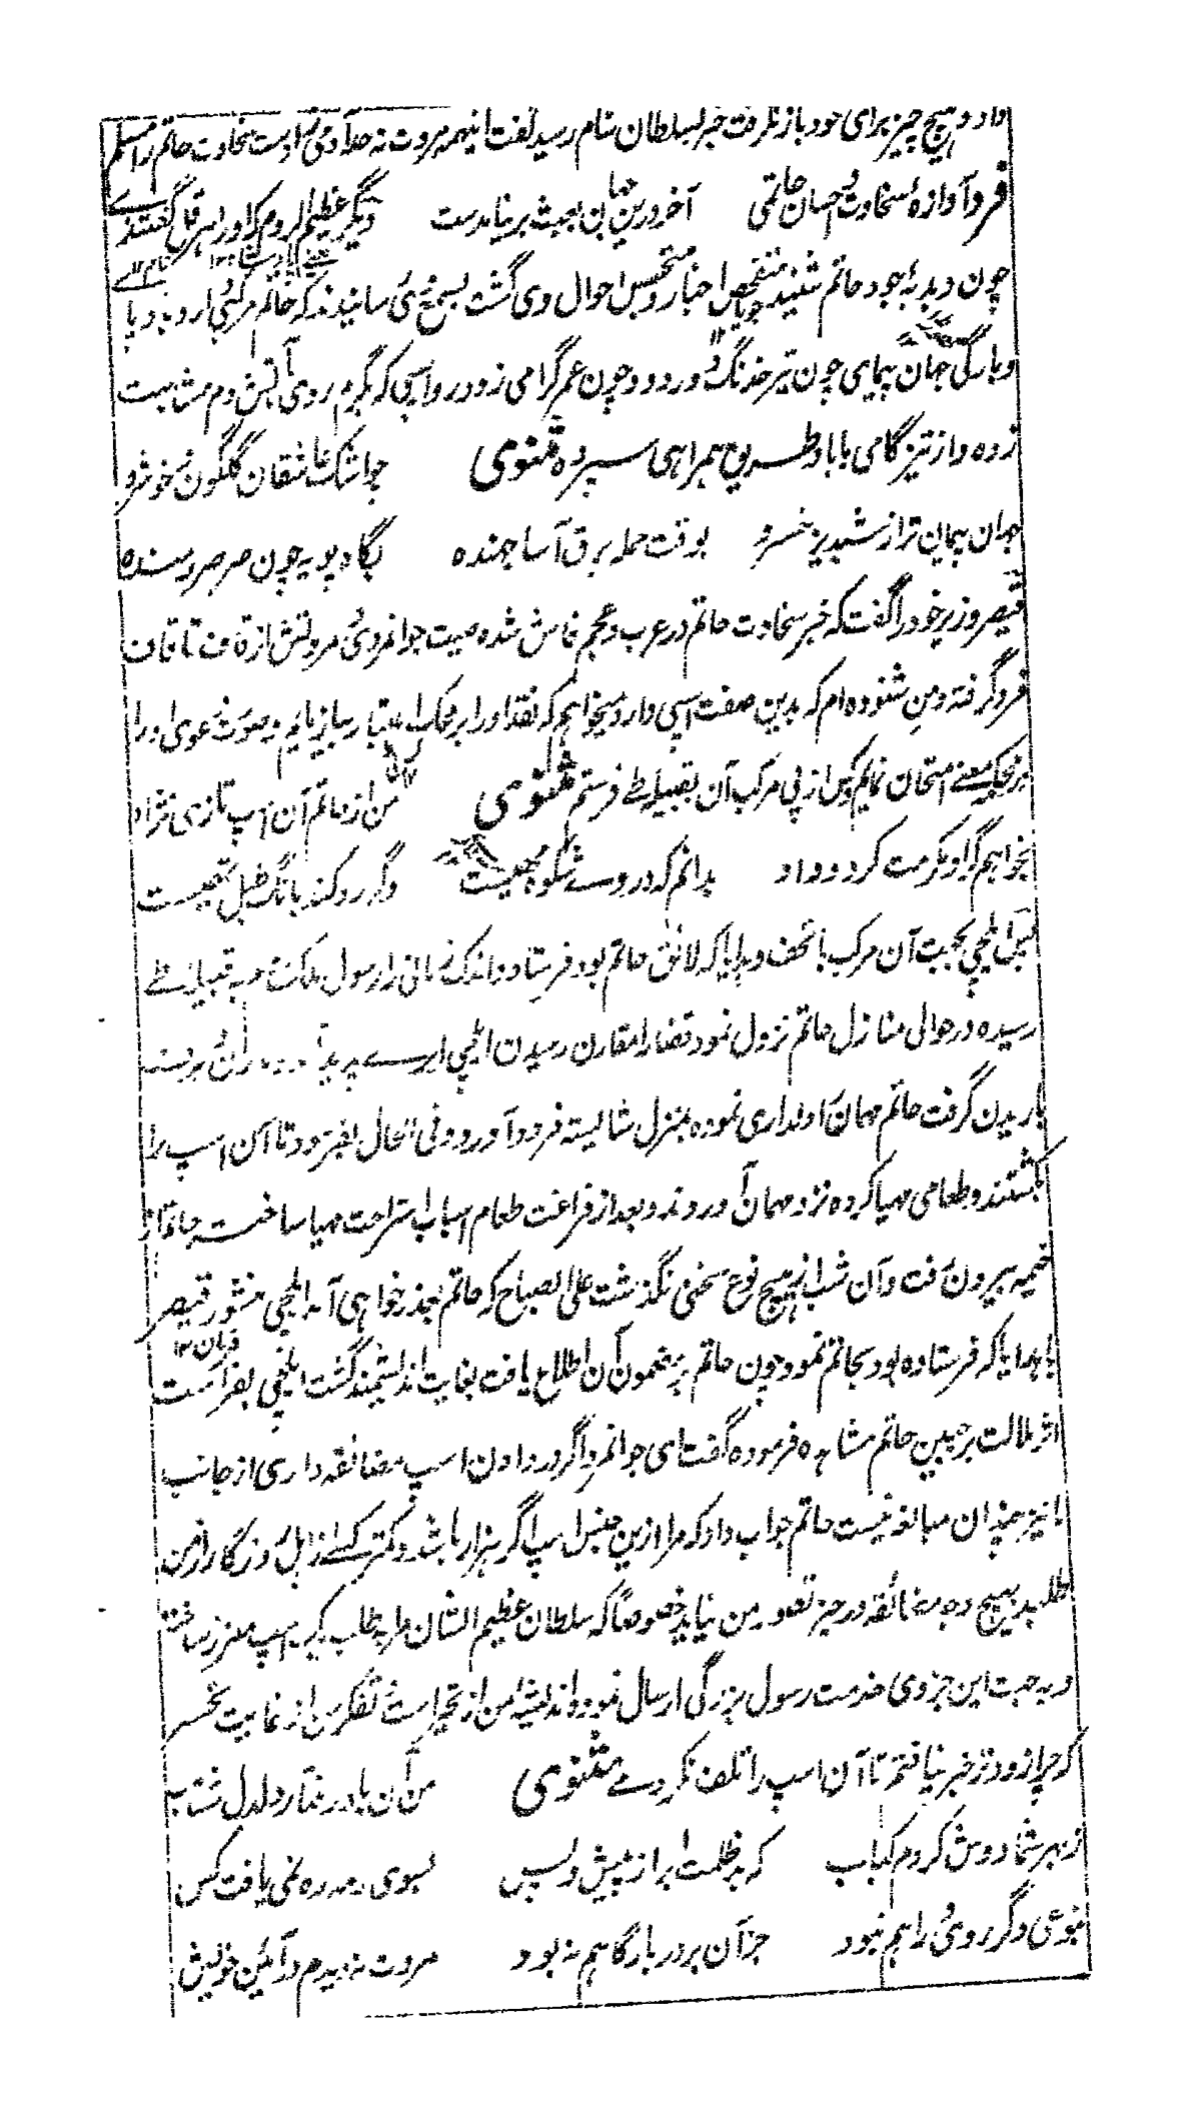 داد و هیچ چیز برای خود باز نگرفت خبر بسلطان شام رسید گفت اینهمه مروت نه حد آدمی است سخاوت حاتم را مسلم
فرد آوازهٔ سخاوت و احسان حاتمی آخر درین جهان بعبث بر نیامدست دیگر عظیم الروم که او را هرقل گفتندے
چون دبدبهٔ جود حاتم شنید متفحص اخبار و متجسس احوال وی گشت بسمع وی رسانیدند که حاتم مرکبی دارد باد پا
و بارگی جهان پیمای چون تیر خدنگ دور رو و چون عمر گرامی زود رو اسپی که بگرم روی آتش دم مشابهت
زده و از تیز گامی با باد طریق همراهی سپرده مثنوی چو اشک عاشقان گلگون خوشرو
جهان پیمان تر از شبدیز خسرو بوقت حمله برق آسا جهنده بگاه پویه چون صرصر رسنده
قیصر وزیر خود را گفت که خبر سخاوت حاتم در عرب و عجم فاش شده صیت جوانمردی و مروتش از قاف تا قاف
فرو گرفته و من شنوده ام که بدین صفت اسپی دارد میخواهم که نقد او را بر محک اعتبار بیازمایم و صوت دعوی او را
بر محک معنے امتحان نمایم کس از پی مرکب آن بقبیله طے فرستم مثنوی من از حاتم آن اسپ تازی نژاد
بخواهم گر او مکرمت کرد و داد بدانم که در وے شکوه مهیست وگر رد کند بانگ طبل تهیست
پس ایلچی بجهت آن مرکب با تحف و هدایا که لائق حاتم بود فرستاد و اندک زمانی را رسول ملک به قبیلهٔ طے
رسیده در حوالی منازل حاتم نزول نمود قضا را مقارن رسیدن ایلچی ابرے پدید
باریدن گرفت حاتم مهمان را دلداری نموده بمنزل شایسته فرود آورد و فی الحال بفرمود تا آن اسپ را
بکشتند و طعامی مهیا کرده نزد مهمان آوردند و بعد از فراغت طعام اسباب استراحت مهیا ساخت حاتم از
خیمه بیرون رفت و آن شب از هیچ نوع سخنی نگذشت علی الصباح که حاتم بعذر خواهی آمد ایلچی منشور قیصر
با هدایا که فرستاده بود بحاتم نمود چون حاتم بر مضمون آن اطلاع یافت بغایت اندیشمند گشت ایلچی بفراست
اثر ملالت بر جبین حاتم مشاهده فرموده گفت ای جوانمرد اگر در دادن اسپ مضائقه داری از جانب
ما نیز چندان مبالغه نیست حاتم جواب داد که مرا ازین جنس اسپ اگر هزار باشد و کمتر کسے از اهل روزگار از من
طلبد بهیچ وجه مضائقه در حیز تصور من نیاید خصوصاً که سلطان عظیم الشان مرا بطلب یک اسپ معزز ساخته
و بجهت این جزوی خدمت رسول بزرگی ارسال نموده اندیشه من از تحیر است و تفکر من از غایت تحسر
که چرا زودتر خبر نیافتم تا آن اسپ را تلف نکردمے مثنوی من آن باد رفتار دلدل شتاب
ز بهر شما دوش کردم کباب که بد ظلمت ابر از پیش و پس بسوی رمه ره نمی یافت کس
بنوعی دگر روی و راهم نبود جز آن بر در بارگاهم نبود مروت ندیدم در آئین خویش